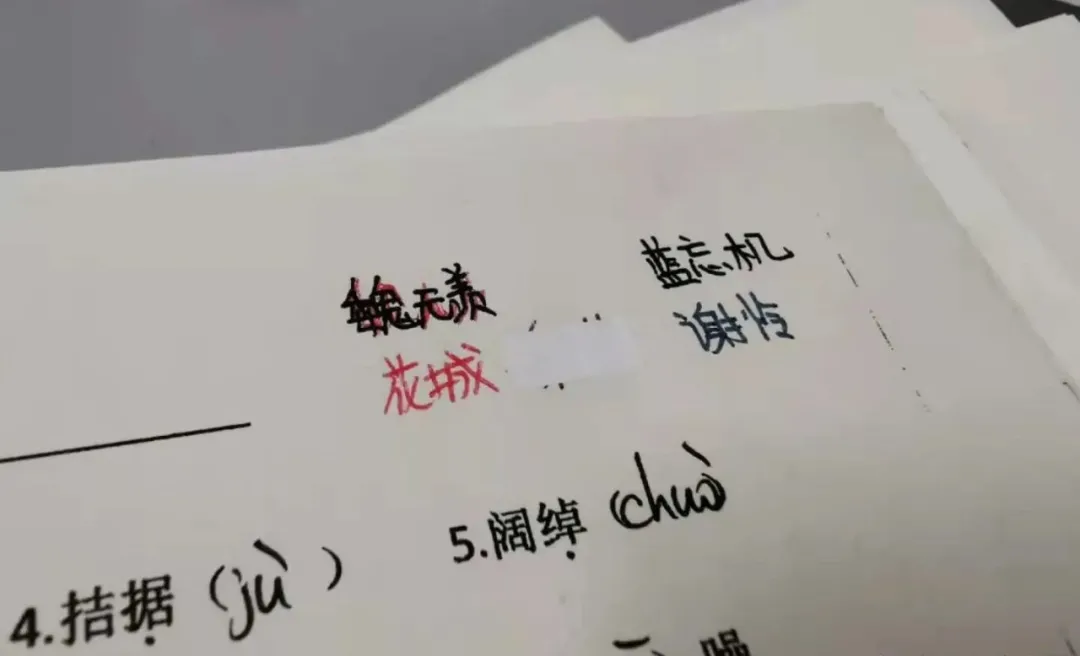 魏无羡 蓝忘机
花城 谢怜
5.阔绰 (chuò
4.拮据 (jù)